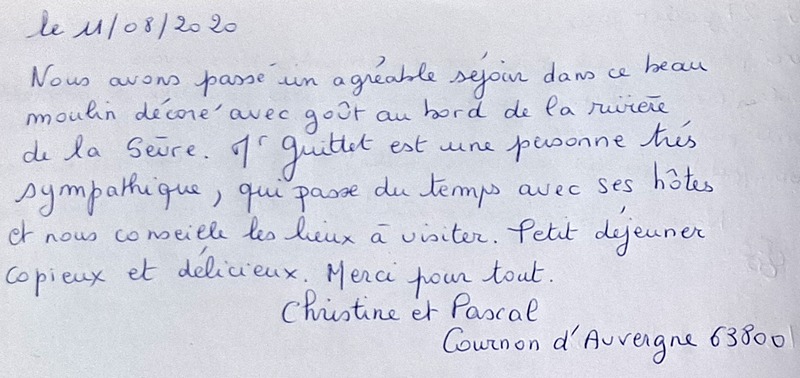 le 11/08/2020
Nous avons passé un agréable séjour dans ce beau
moulin décoré avec goût au bord de la rivière
de la Sèvre. Mr Guittet est une personne très
sympathique, qui passe du temps avec ses hôtes
et nous conseille les lieux à visiter. Petit déjeuner
copieux et délicieux. Merci pour tout.
Christine et Pascal
Cournon d'Auvergne 63800